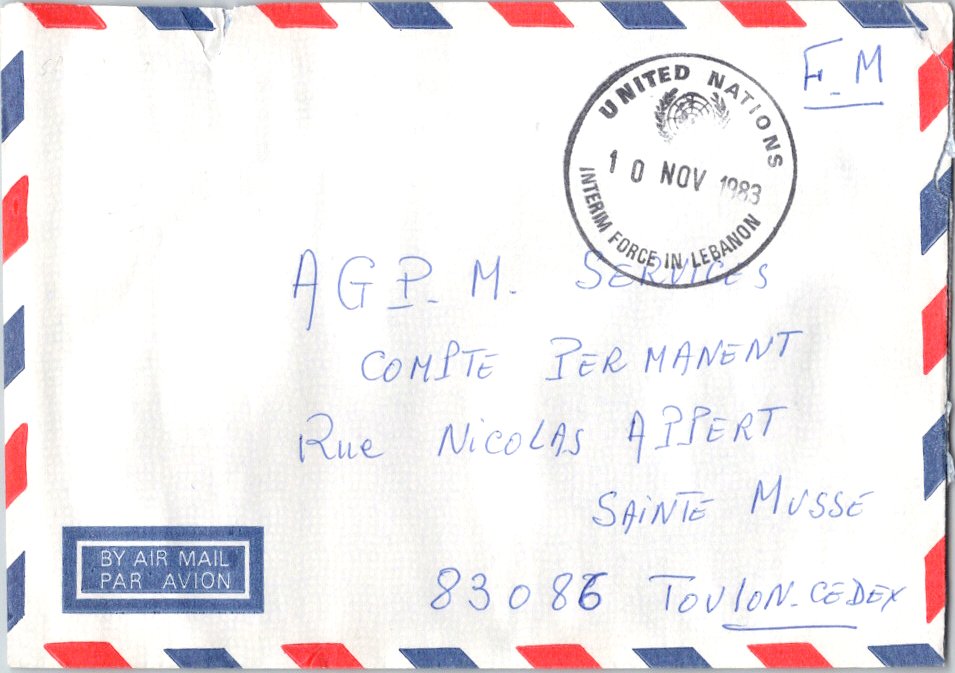 F. M
UNITED NATIONS
10 NOV 1983
INTERIM FORCE IN LEBANON
A G P. M. SERVICES
COMPTE PERMANENT
Rue NICOLAS APPERT
SAINTE MUSSE
83086 TOULON-CEDEX
BY AIR MAIL
PAR AVION